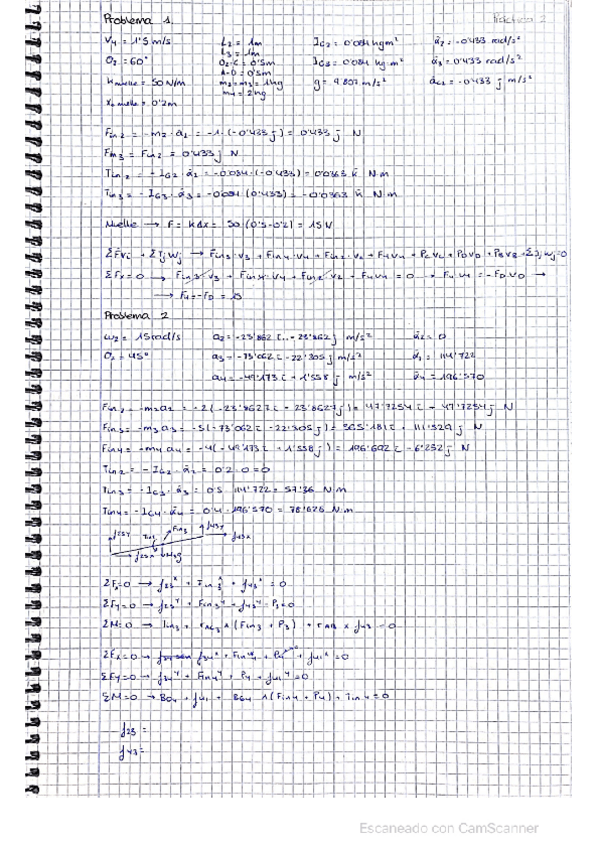 Problema 1 Práctica 2
V4 = 1'5 m/s L2 = 1m IG2 = 0'084 kg m² α2 = -0'433 rad/s²
θ2 = 60° L3 = 1m IG3 = 0'084 kg m² α3 = 0'433 rad/s²
K muelle = 50 N/m O2-C = 0'5m g = 9'807 m/s² -0'433 j m/s²
A-D = 0'5m
m2 = m3 = 1kg
m4 = 2kg
x0 muelle = 0'2m
Fin2 = -m2·a2 = -1·(-0'433 j) = 0'433 j N
Fin3 = Fin2 = 0'433 j N
Tin2 = -IG2·α2 = -0'084·(-0'433) = 0'0363 k N·m
Tin3 = -IG3·α3 = -0'084 (0'433) = -0'0363 k N·m
Muelle → F = KΔx = 50 (0'5-0'2) = 15 N
ΣFvi + ΣTjwj → Fin3·v3 + Fin4·v4 + Fin2·v2 + F4v4 + PcVc + PDVD + PBVB + ΣTjwj=0
ΣFx = 0 → Fin3·v3 + Fin4·v4 + Fin2·v2 + F4v4 = 0 → F4·v4 = -FD·VD →
→ F4 = -FD =
Problema 2
ω2 = 15 rad/s a2 = -23'862 i - 23'862 j m/s² α2 = 0
θ2 = 45° a3 = -73'062 i - 22'305 j m/s² 114'722
a4 = -49'173 i + 1'558 j m/s² α4 = 196'570
Fin2 = -m2a2 = -2(-23'8627 i - 23'8627 j) = 47'7254 i + 47'7254 j N
Fin3 = -m3a3 = -5(-73'062 i - 22'305 j) = 365'31 i + 111'529 j N
Fin4 = -m4a4 = -4(-49'173 i + 1'558 j) = 196'692 i - 6'232 j N
Tin2 = -IG2·α2 = 0'2·0 = 0
Tin3 = -IG3·α3 = 0'5 114'722 = 57'36 N·m
Tin4 = -IG4·α4 = 0'4·196'570 = 78'628 N·m
f23y Tin3 Fin3 f43y f43x
f23x m3g
ΣFx=0 → f23x + Fin3x + f43x = 0
ΣFy=0 → f23y + Fin3y + f43y - P3 = 0
ΣM=0 → Tin3 + rAG3 ∧ (Fin3 + P3) + rAB x f43 = 0
ΣFx=0 → f34x + Fin4x + P4 + f41x = 0
ΣFy=0 → f34y + Fin4y + P4 + f41y = 0
ΣM=0 → BO4 ∧ f41 + BG4 ∧ (Fin4 + P4) + Tin4 = 0
f23 =
f43 =
Escaneado con CamScanner